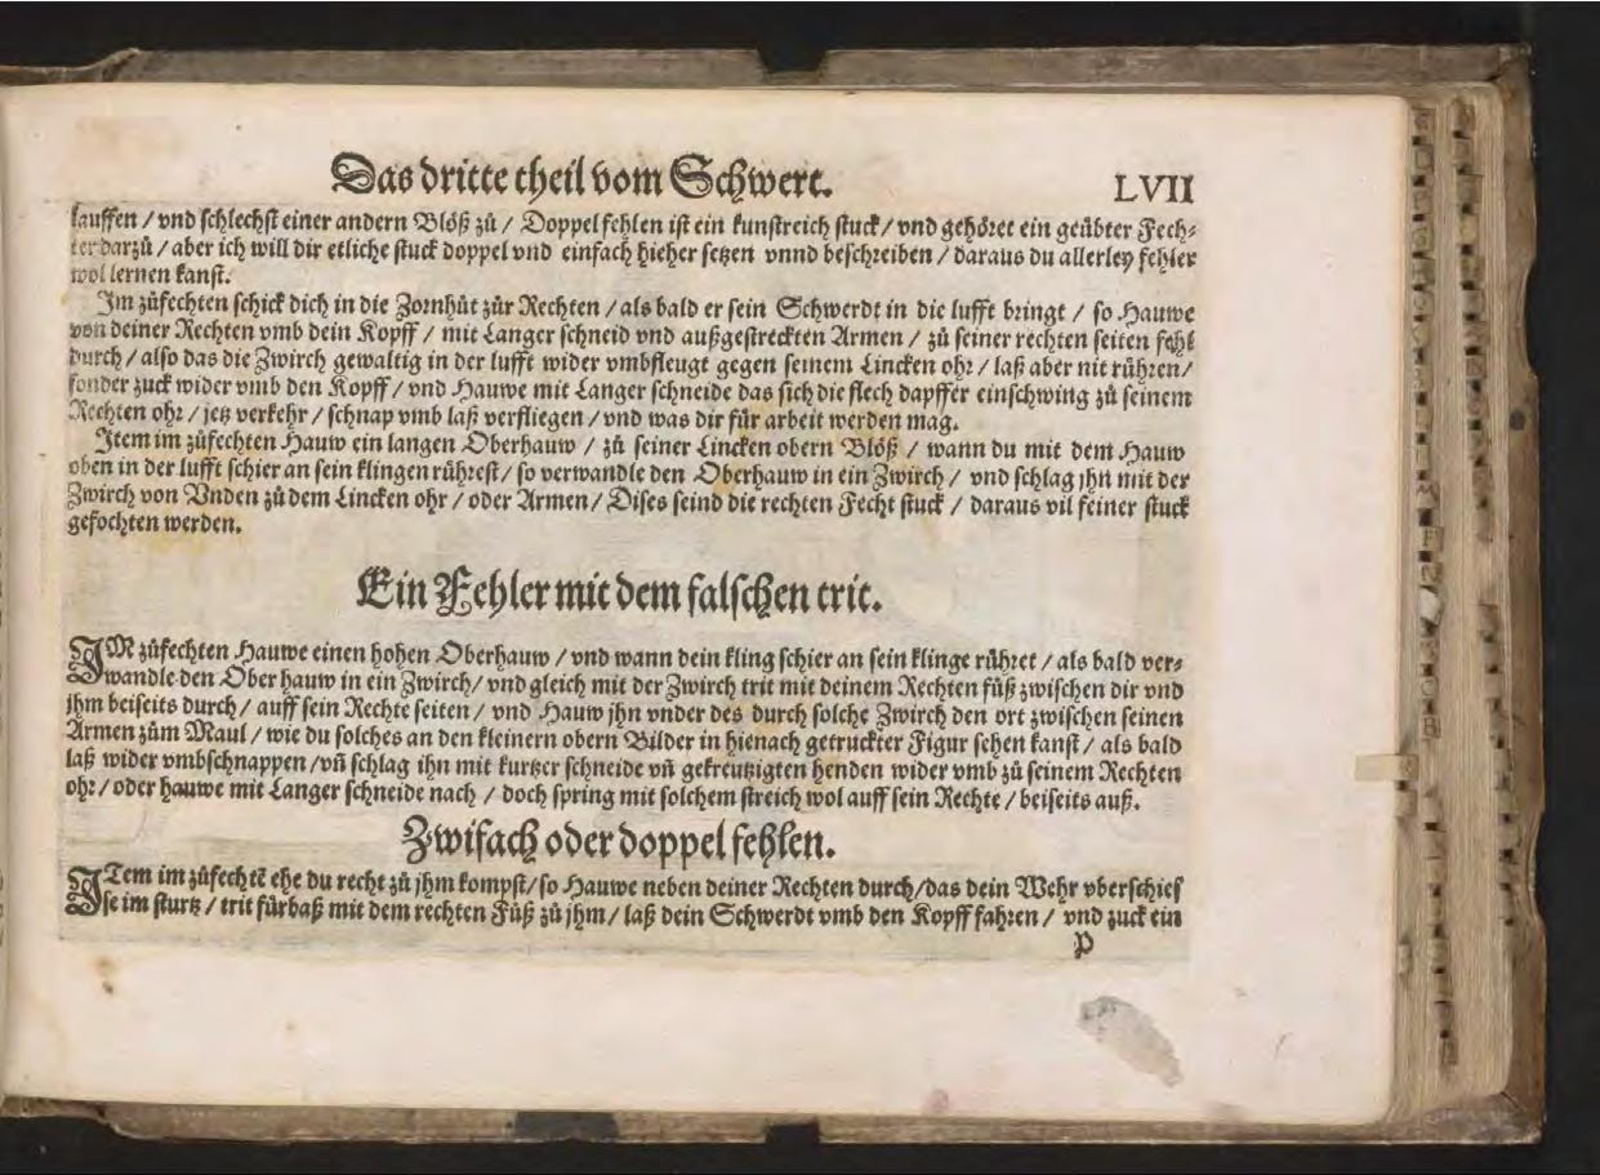 Das dritte theil vom Schwert.
LVII
lauffen / vnd schlechst einer andern Blöß zů / Doppel fehlen ist ein kunstreich stuck / vnd gehöret ein geübter Fech-
ter darzů / aber ich will dir etliche stuck doppel vnd einfach hieher setzen vnnd beschreiben / daraus du allerley fehler
wol lernen kanst.
Im zůfechten schick dich in die Zornhůt zůr Rechten / als bald er sein Schwerdt in die lufft bringt / so Hauwe
von deiner Rechten vmb dein Kopff / mit Langer schneid vnd außgestreckten Armen / zů seiner rechten seiten fehl
durch / also das die Zwirch gewaltig in der lufft wider vmbfleugt gegen seinem Lincken ohr / laß aber nit rühren /
sonder zuck wider vmb den Kopff / vnd Hauwe mit Langer schneide das sich die flech dapffer einschwing zů seinem
Rechten ohr / jetz verkehr / schnap vmb laß verfliegen / vnd was dir für arbeit werden mag.
Item im zůfechten Hauw ein langen Oberhauw / zů seiner Lincken obern Blöß / wann du mit dem Hauw
oben in der lufft schier an sein klingen rührest / so verwandle den Oberhauw in ein Zwirch / vnd schlag jhn mit der
Zwirch von Vnden zů dem Lincken ohr / oder Armen / Dises seind die rechten Fecht stuck / daraus vil feiner stuck
gefochten werden.
Ein Fehler mit dem falschen trit.
IM zůfechten Hauwe einen hohen Oberhauw / vnd wann dein kling schier an sein klinge rühret / als bald ver-
wandle den Ober hauw in ein Zwirch / vnd gleich mit der Zwirch trit mit deinem Rechten fůß zwischen dir vnd
jhm beiseits durch / auff sein Rechte seiten / vnd Hauw jhn vnder des durch solche Zwirch den ort zwischen seinen
Armen zům Maul / wie du solches an den kleinern obern Bilder in hienach getruckter Figur sehen kanst / als bald
laß wider vmbschnappen / vñ schlag ihn mit kurtzer schneide vñ gekreutzigten henden wider vmb zů seinem Rechten
ohr / oder hauwe mit Langer schneide nach / doch spring mit solchem streich wol auff sein Rechte / beiseits auß.
Zwifach oder doppel fehlen.
ITem im zůfechtē ehe du recht zů jhm kompst / so Hauwe neben deiner Rechten durch / das dein Wehr vberschies
se im sturtz / trit fürbaß mit dem rechten Fůß zů jhm / laß dein Schwerdt vmb den Kopff fahren / vnd zuck ein
P